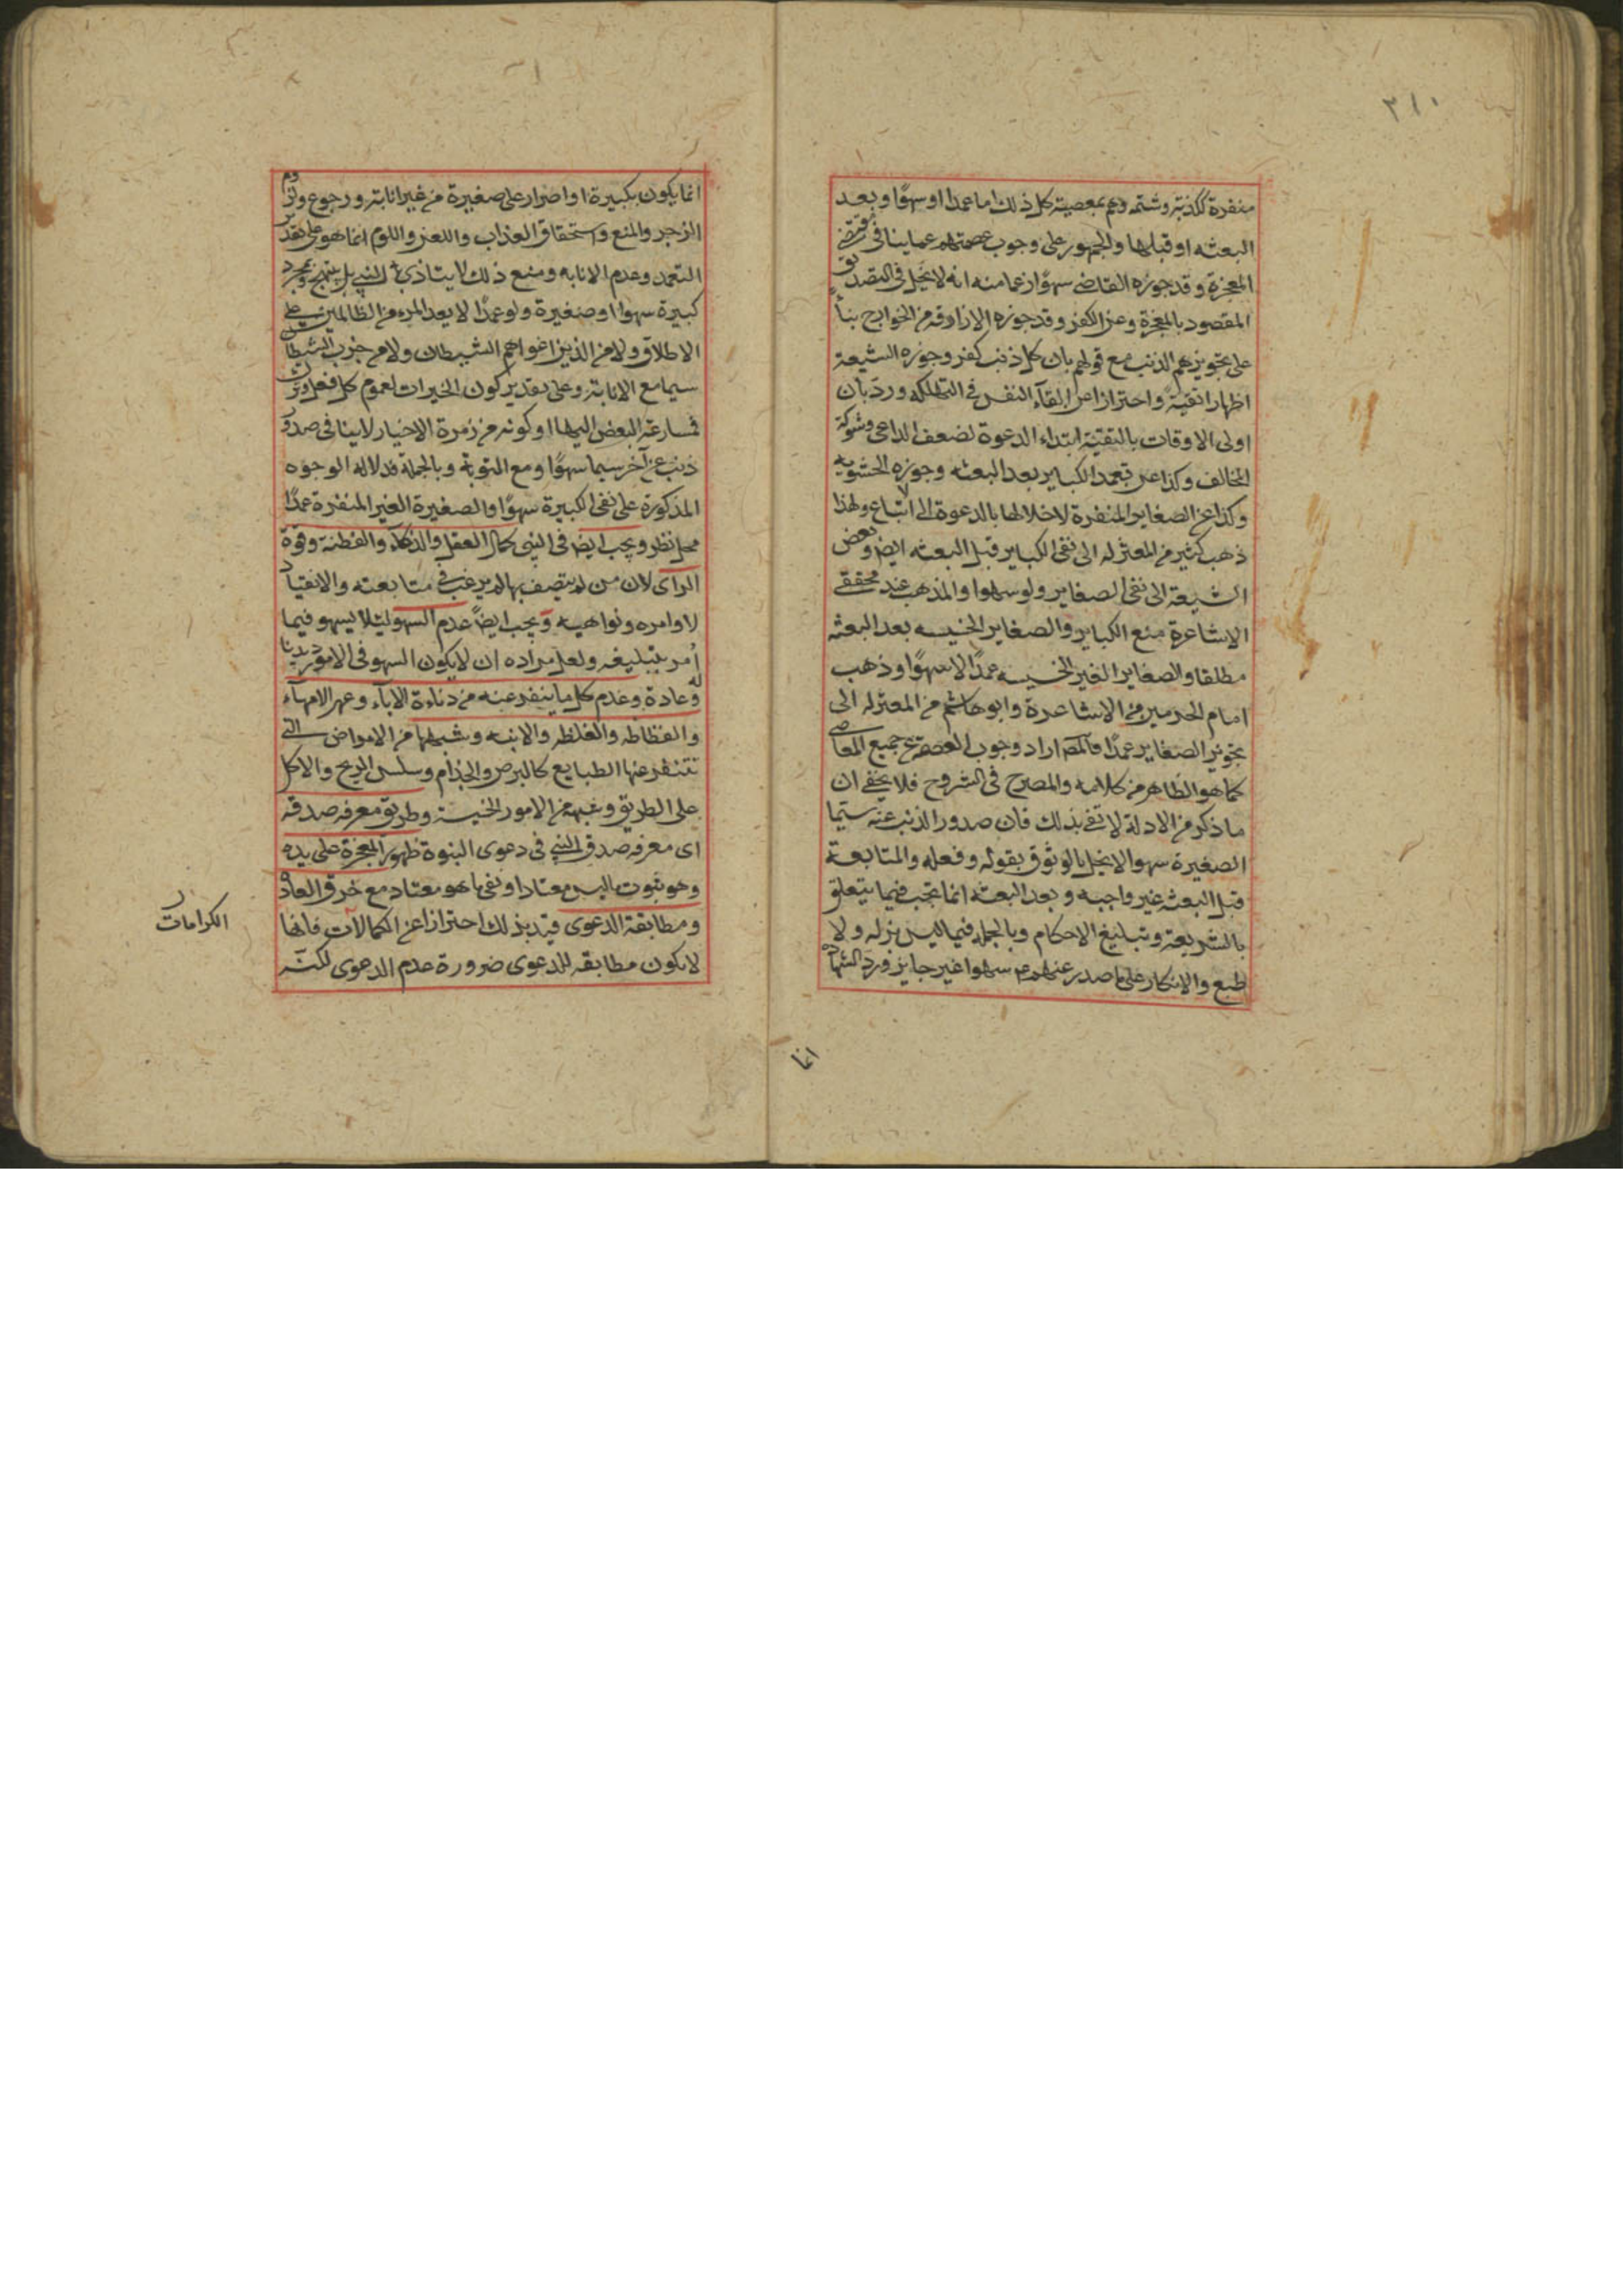 ٣١٠
منفرة ككذبة وشتمه وهم بمعصية كل ذلك اما عمدا او سهوًا وبعد
البعثه او قبلها والجمهور على وجوب عصمتهم عما ينافى مقتضى
المعجزة وقد جوزه القاضى سهوًا زعما منه انه لا يخل فى التصديق
المقصود بالمعجزة وعن الكفر وقد جوزه الازارقه من الخوارج بناءً
على تجويزهم الذنب مع قولهم بان كل ذنب كفر وجوزه الشيعة
اظهارا تقيةً واحترازا عن القآء النفس فى التهلكه وردّ بان
اولى الاوقات بالتقيّة ابتداء الدعوة لضعف الداعى وشوكة
المخالف وكذا عن تعمد الكباير بعد البعثه وجوزه الحشويه
وكذا عن الصغاير المنفرة لاخلالها بالدعوة الى الاتباع ولهذا
ذهب كثير من المعتزله الى نفى الكباير قبل البعثه ايض وبعض
الشيعة الى نفى الصغاير ولو سهوا والمذهب عند محققى
الاشاعرة منع الكباير والصغاير الخسيسه بعد البعثه
مطلقا والصغاير الغير الخسيسه عمدًا لا سهوًا وذهب
امام الحرمين من الاشاعرة وابو هاشم من المعتزله الى
تجويز الصغاير عمدًا فالمص اراد وجوب العصمة عن جميع المعاصى
كما هو الظاهر من كلامه والمصرح فى الشروح فلا يخفى ان
ما ذكر من الادلة لا تفى بذلك فان صدور الذنب عنه سيّما
الصغيرة سهوا لا يخل بالوثوق بقوله وفعله والمتابعة
قبل البعثه غير واجبه وبعد البعثه انما تجب فيما يتعلق
بالشريعة وتبليغ الاحكام وبالجمله فيما ليس بزله ولا
طبع والانكار على ما صدر عنهم سهوا غير جايز ورد الشهادة
انما
انما يكون بكبيرة او اصرار على صغيرة من غير انابة ورجوع ولزوم
الزجر والمنع واستحقاق العذاب واللعن واللوم انما هو على تقدير
التعمد وعدم الانابه ومنع ذلك لا يتاذى به النبى بل يبتهج وبمجرد
كبيرة سهوا او صغيرة ولو عمدًا لا يعد المرء من الظالمين على
الاطلاق ولا من الذين اغواهم الشيطان ولا من حزب الشيطان
سيما مع الانابة وعلى تقدير كون الخيرات لعموم كل فعل وترك
فمسارعة البعض اليها او كونه من زمرة الاخيار لا ينافى صدور
ذنب عن آخر سيما سهوًا ومع التوبة وبالجملة فدلاله الوجوه
المذكورة على نفى الكبيرة سهوًا والصغيرة الغير المنفرة عمدًا
محل نظر ويجب ايض فى النبى كمال العقل والذكآء والفطنة وقوة
الراى لان من لم يتصف بها لم يرغب فى متابعته والانقياد
لاوامره ونواهيه ويجب ايضً عدم السهو لئلا يسهو فيما
أمر بتبليغه ولعل مراده ان لا يكون السهو فى الامور ديدنا
له وعادة وعدم كل ما ينفر عنه من دناءة الابآء وعهر الامهآء
والفظاظه والغلظه والابنه وشبهها من الامراض التى
تتنفر عنها الطبايع كالبرص والجذام وسلس الريح والاكل
على الطريق وشبهه من الامور الخسيسة وطريق معرفه صدقه
اى معرفه صدق النبى فى دعوى النبوة ظهور المعجزة على يده
وهو ثبوت ما ليس معتادا او نفى ما هو معتاد مع خرق العادة
ومطابقة الدعوى قيد بذلك احترازا عن الكمالات فانها
لا يكون مطابقه للدعوى ضرورة عدم الدعوى لكنّه
الكرامات